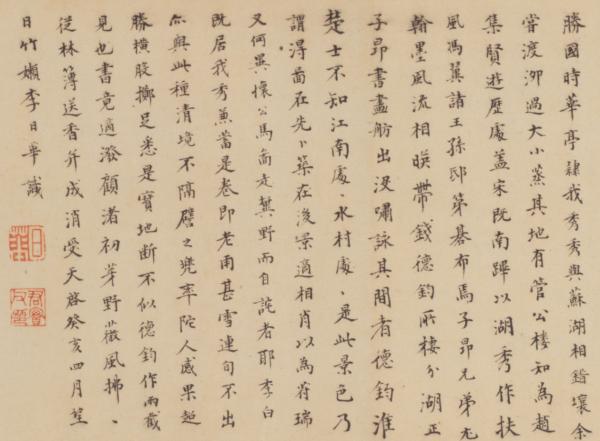 勝國時華亭隸我秀秀與蘇湖相錯壤余
嘗渡泖過大小蒸其地有管公樓知為趙
集賢遊歷處蓋宋既南蹕以湖秀作扶
風馮翼諸王孫邸第碁布馬子昂兄弟尤
翰墨風流相暎帶錢德鈞所棲分湖正
子昂書畫舫出沒嘯詠其間者德鈞淮
楚士不知江南處、水村處、是此景色乃
謂淂啚在先卜築在後景適相肖以為符瑞
又何異懷公馬啚走冀野而自詫者耶李白
既居我秀兼蓄是卷即老甫甚雪連旬不出
尒與此種清境不隔譬之兜率陀人感果超
勝橫股擲足悉是寶地斷不似德鈞作兩截
見也書竟適潑顧渚初芽野薇風拂、
從林薄送香并成消受天啓癸亥四月望
日竹嬾李日華識
日華